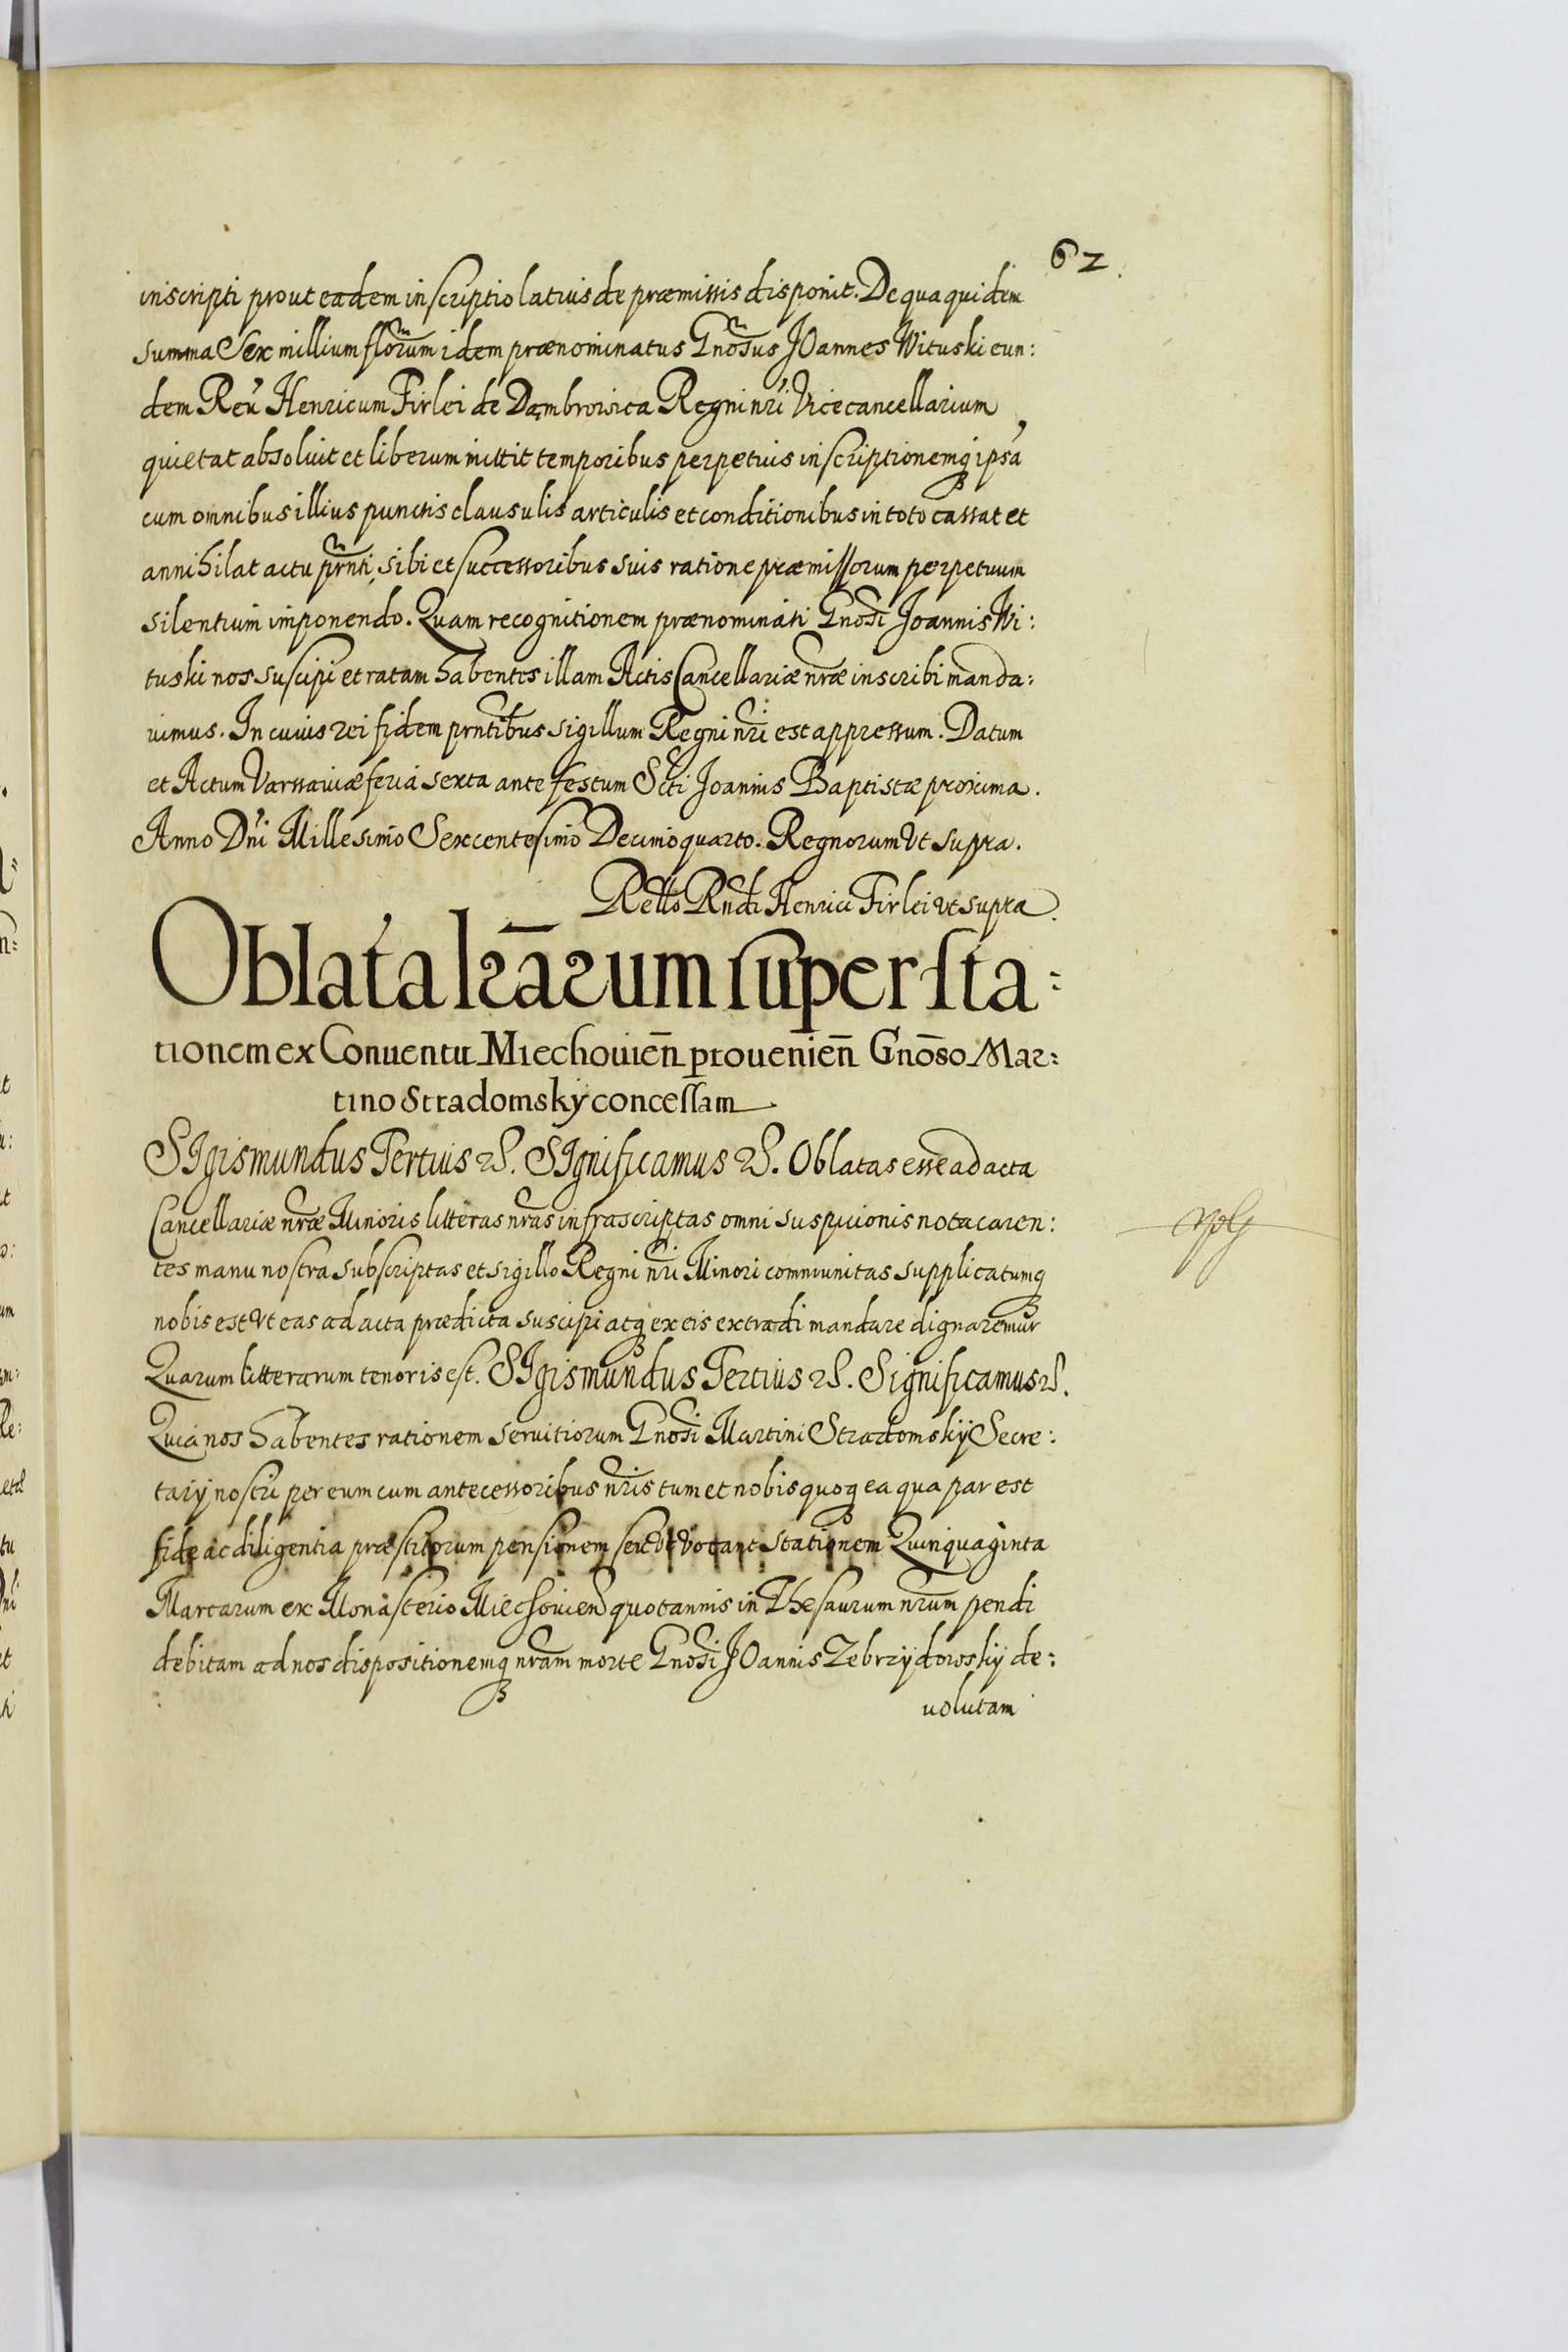 62
inscripti prout eadem inscriptio latius de præmissis disponit. De qua quidem
summa Sex millium florum idem prænominatus Gnosus JOannes Wituski eun:
dem Reu Henricum Firlei de Dąmbrowica Regni nri Vicecancellarium
quietat absoluit et liberum mittit temporibus perpetuis inscriptionemq ipsa
cum omnibus illius punctis clausulis articulis et conditionibus in toto cassat et
annihilat actu prnti, sibi et successoribus suis ratione præmissorum perpetuum
silentium imponendo. Quam recognitionem prænominati Gnosi Joannis Wi:
tuski nos suscipi et ratam habentes illam Actis Cancellariæ nræ inscribi manda:
uimus. In cuius rei fidem prntibus sigillum Regni nri est appressum. Datum
et Actum Varssauiæ feria sexta ante festum Scti Joannis Baptistæ proxima.
Anno Dni Millesimo Sexcentesimo Decimoquarto. Regnorum Vt supra.
Rello Rndi Henrici Firlei vt supra.
Oblata lrarum super sta:
tionem ex Conuentu Miechouien prouenien Gnoso Mar:
tino Stradomsky concessam
SIgismundus Tertius etc. SIgnificamus etc. Oblatas esse ad acta
Cancellariæ nræ Minoris litteras nras infrascriptas omni suspicionis nota caren:
tes manu nostra subscriptas et sigillo Regni nri Minori communitas supplicatumq
nobis est Vt eas ad acta prædicta suscipi atq ex eis extradi mandare dignaremur
Quarum litterarum tenor is est. SIgismundus Tertius etc. Significamus etc.
Quia nos habentes rationem seruitiorum Gnosi Martini Stradomskÿ Secre:
tarÿ nostri per eum cum antecessoribus nris tum et nobis quoq ea qua par est
fide ac diligentia præstitorum pensionem seu Vt Vocant stationem Quinquaginta
Marcarum ex Monasterio Miechouien quotannis in Thesaurum nrum pendi
debitam ad nos dispositionemq nram morte Gnosi JOannis Zebrzÿdowskÿ de:
uolutam